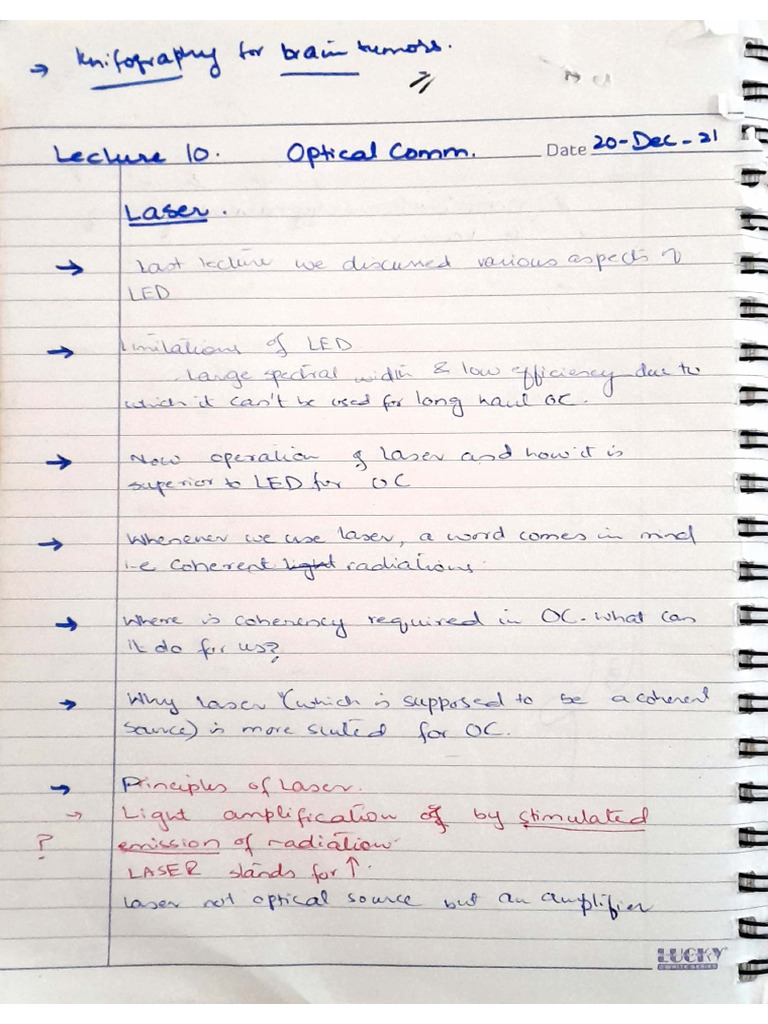 → Knifography for brain tumors.
Lecture 10. Optical Comm. Date 20-Dec-21
Laser.
→ Last lecture we discussed various aspects of
LED
→ Limitations of LED
Large spectral width & low efficiency due to
which it can't be used for long haul OC.
→ Now operation of laser and how it is
superior to LED for OC
→ Whenever we use laser, a word comes in mind
i.e coherent light radiations.
→ Where is coherency required in OC. What can
it do for us?
→ Why laser (which is supposed to be a coherent
source) is more suited for OC.
→ Principles of Laser.
→ Light amplification of by stimulated
? emission of radiation.
LASER stands for ↑.
Laser not optical source but an amplifier
LUCKY